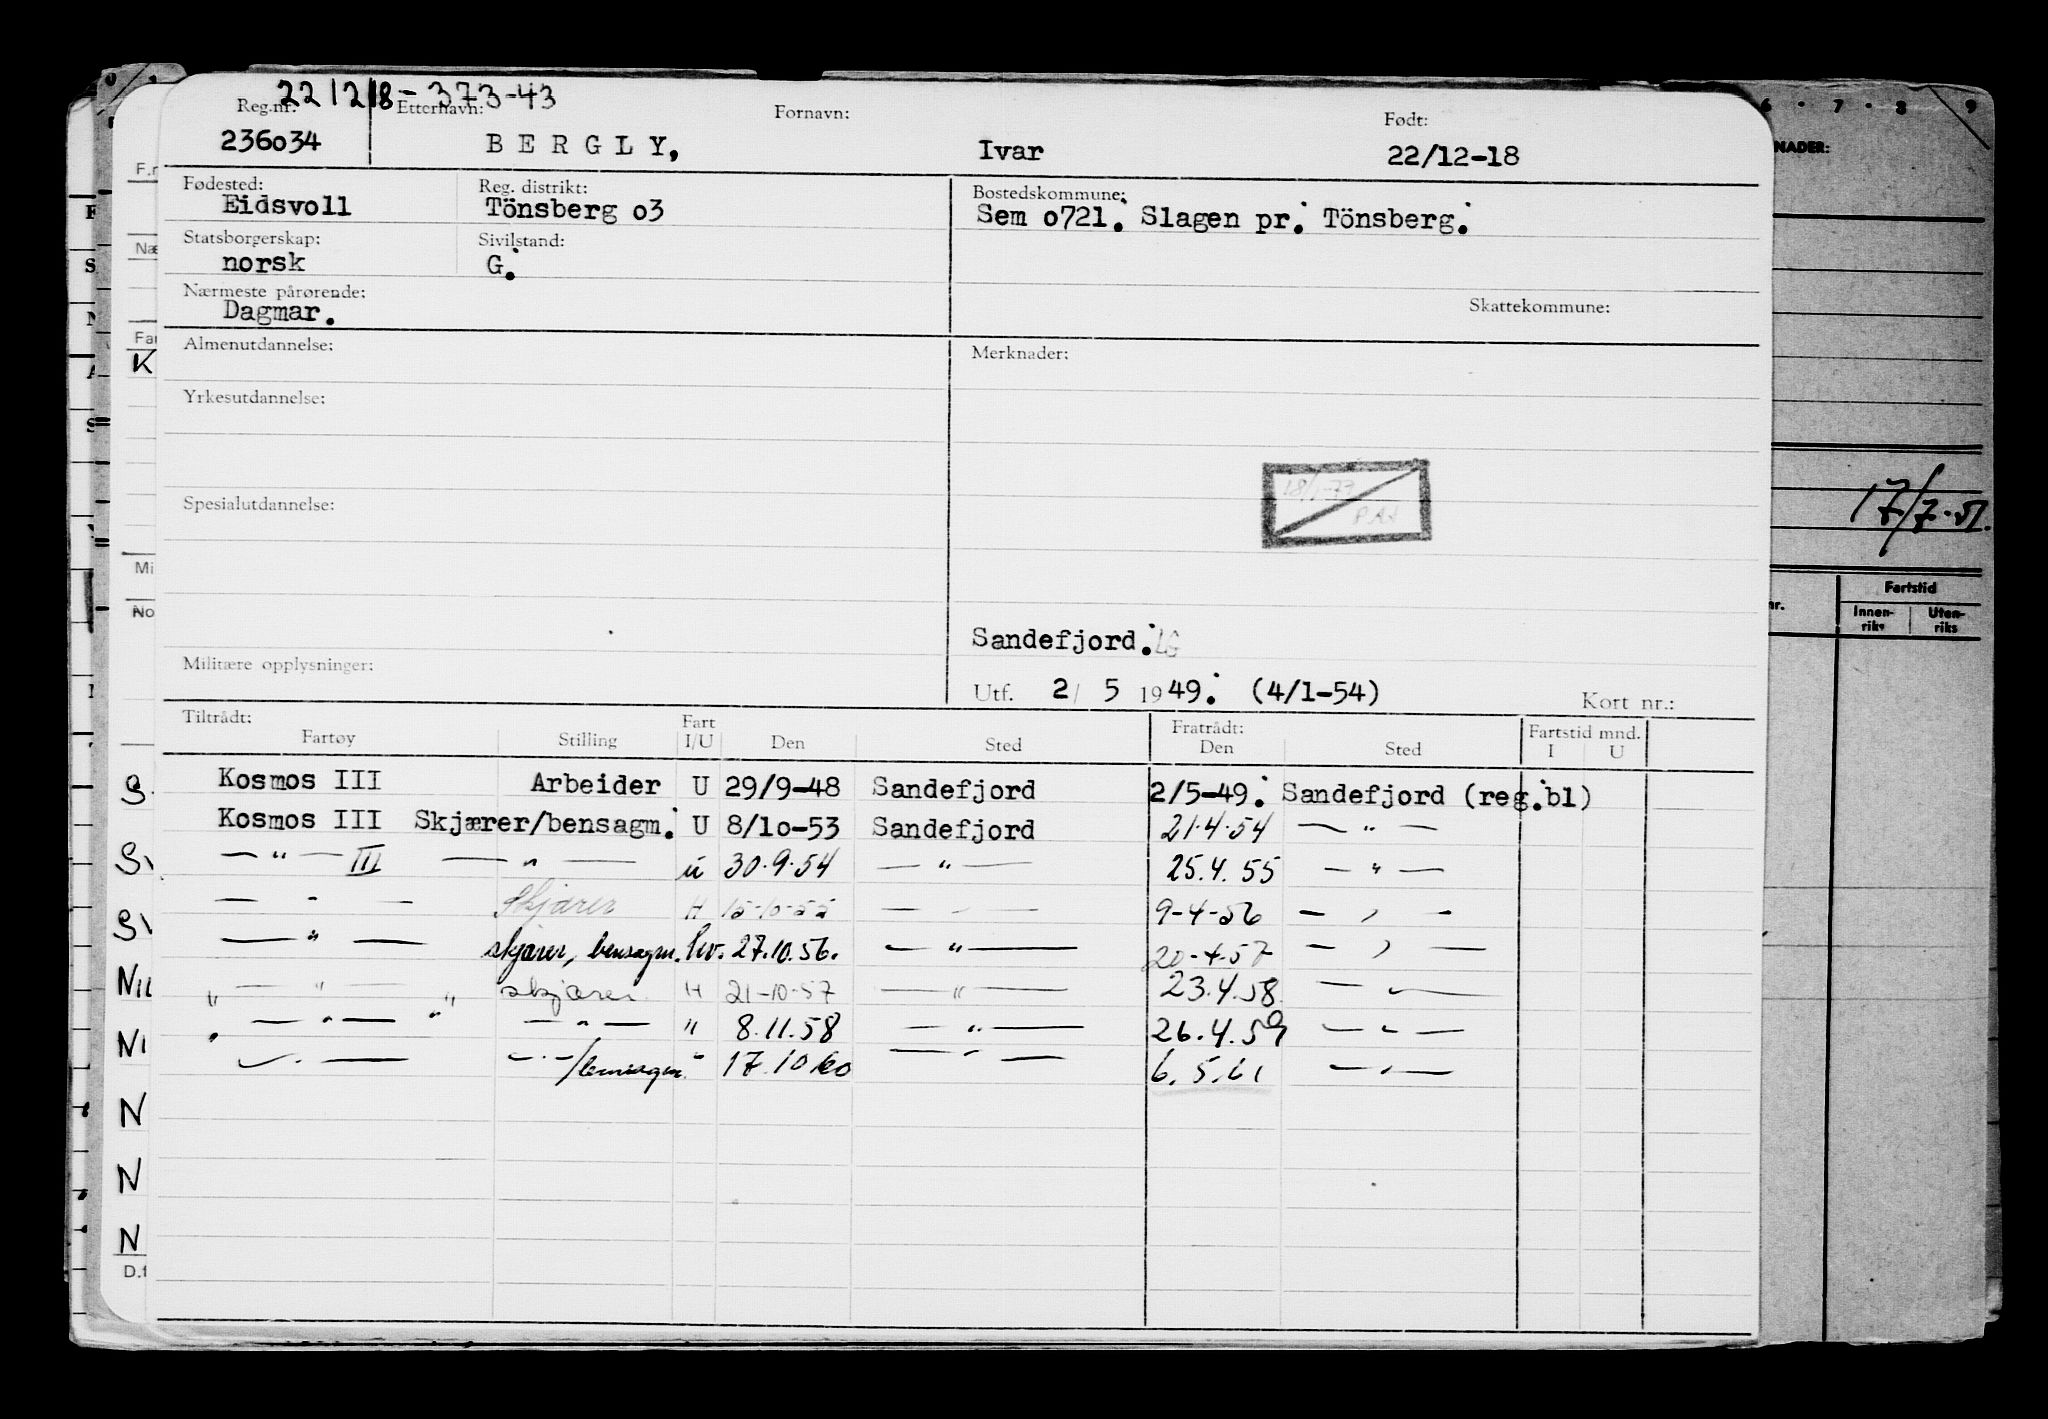 221218-373-43
Reg.nr. Etternavn: Fornavn: Født:
236o34 BERGLY, Ivar 22/12-18
Fødested: Reg. distrikt: Bostedskommune:
Eidsvoll Tönsberg o3 Sem o721. Slagen pr. Tönsberg.
Statsborgerskap: Sivilstand:
norsk G.
Nærmeste pårørende: Skattekommune:
Dagmar.
Almenutdannelse: Merknader:
Yrkesutdannelse:
Spesialutdannelse:
Sandefjord. LG
Militære opplysninger:
Utf. 2/ 5 1949. (4/1-54) Kort nr.:
Tiltrådt: Fart Fratrådt: Fartstid mnd.
Fartøy Stilling I/U Den Sted Den Sted I U
Kosmos III Arbeider U 29/9-48 Sandefjord 2/5-49. Sandefjord (reg.bl)
Kosmos III Skjærer/bensagm. U 8/1o-53 Sandefjord 21.4.54 — " —
— " — III — " — u 30.9.54 — " — 25.4.55 — " —
— " — Skjærer H 15-10-55 — " — 9-4-56 — " —
— " — skjærer, bensagm. Hv. 27.10.56. — " — 20-4-57 — " —
" — " — " skjærer H 21-10-57 — " — 23.4.58 — " —
" — " — " — " — " 8.11.58 — " — 26.4.59 — " —
— " — — " — /bensagm. " 17.10.60 — " — 6.5.61 — " —
NADER:
17/7-51.
Fartstid
nr. Innen-riks Uten-riks
K
Mi
No
D.f